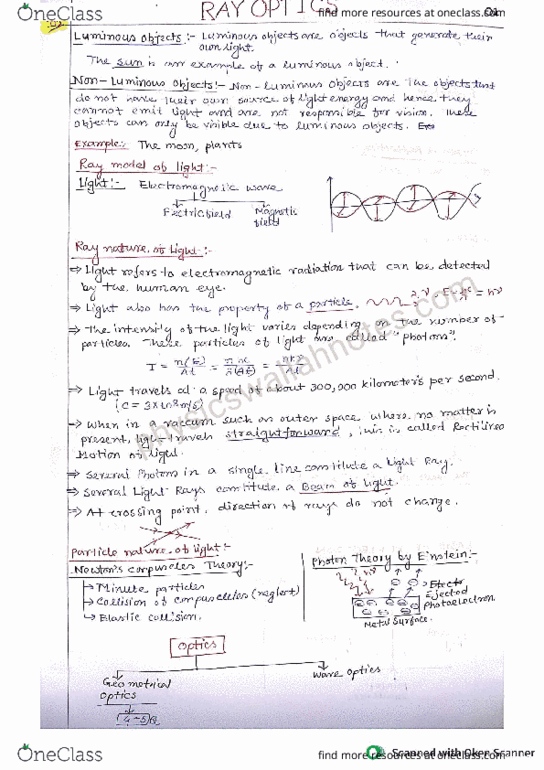 OneClass
RAY OPTICS
find more resources at oneclass.com
01
Luminous objects:- Luminous objects are objects that generate their
own light.
The sun is an example of a luminous object.
Non-Luminous objects:- Non-luminous objects are the objects that
do not have their own source of light energy and hence they
cannot emit light and are not responsible for vision. These
objects can only be visible due to luminous objects.
Example:- The moon, plants
Ray model of light:-
Light:- Electromagnetic wave
Electric field Magnetic
field
Ray nature of light:-
⇒ Light refers to electromagnetic radiation that can be detected
by the human eye.
⇒ Light also has the property of a particle.
⇒ The intensity of the light varies depending on the number of
particles. These particles of light are called "photons".
⇒ Light travels at a speed of about 300,000 kilometers per second.
⇒ When in a vaccum such on outer space where no matter is
present, light travels straightforward, this is called Rectilinear
Motion of light.
⇒ Several Photon in a single line constitute a light Ray.
⇒ Several Light Rays constitute a Beam of light.
⇒ At crossing point, direction of rays do not change.
Particle nature of light:-
Newton's corpuscles Theory:-
→ Minute particles
→ Collision of corpuscles (neglect)
→ Elastic collision.
Photon Theory by Einstein:-
Electr
Ejected
photoelectron
Metal Surface.
Optics
Geometrical
optics
Wave optics
physicswallahnotes.com
OneClass
Scanned with Oken Scanner
find more resources at oneclass.com